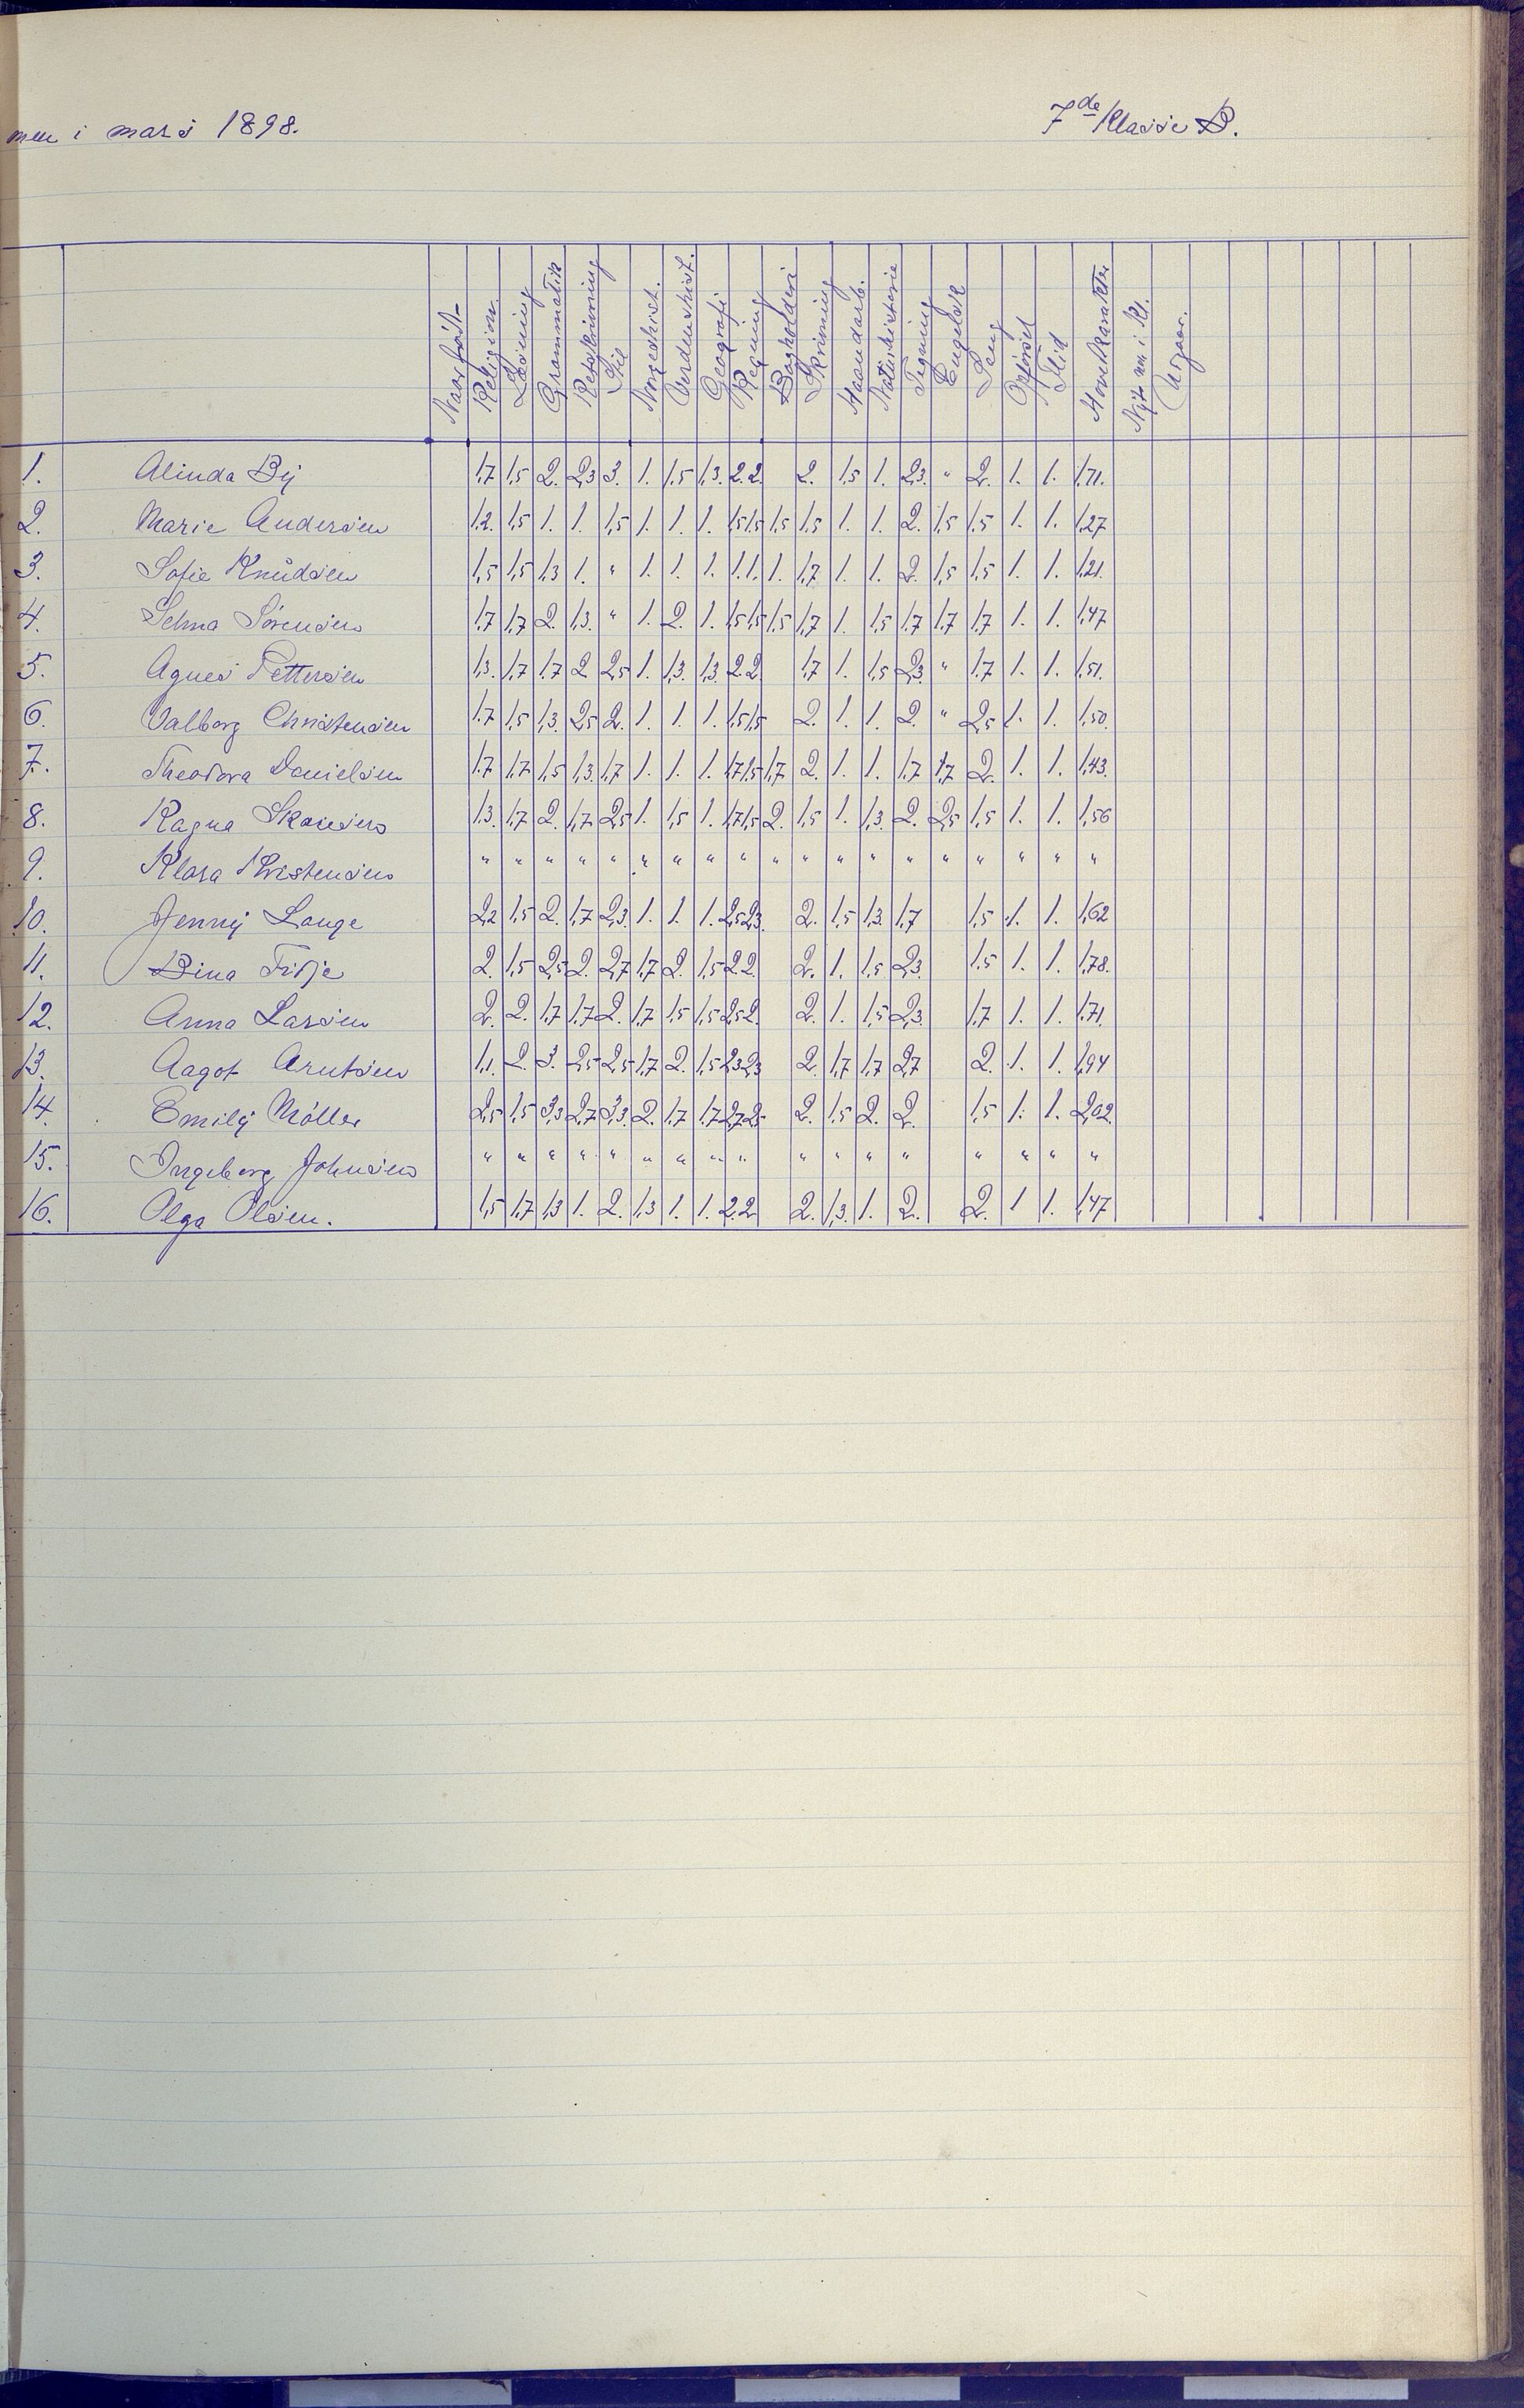 men i mars 1898. 7de Klasse B.
Naar født Religion. Læsning Grammatik Retskrivning Stil Norgeshist. Verdenshist. Geografi Regning Bogholderi Skrivning Haandarb. Naturhistorie Tegning Engelsk Sang Opførsel Flid Hovedkarakter Nyt nr i Kl. Afgaar.
1. Alinda By 1,7 1,5 2. 2,3 3. 1. 1,5 1,3. 2. 2. 2. 1,5 1. 2,3. " 2. 1. 1. 1,71.
2. Marie Andersen 1,2. 1,5 1. 1. 1,5 1. 1. 1. 1,5 1,5 1,5 1,5 1. 1. 2. 1,5 1,5 1. 1. 1,27
3. Sofie Knudsen 1,5 1,5 1,3 1. " 1. 1. 1. 1. 1. 1. 1,7 1. 1. 2. 1,5 1,5 1. 1. 1,21.
4. Selma Sørensen 1,7 1,7 2. 1,3. " 1. 2. 1. 1,5 1,5 1,5 1,7 1. 1,5 1,7 1,7 1,7 1. 1. 1,47
5. Agnes Pettersen 1,3. 1,7 1,7 2 2,5 1. 1,3. 1,3. 2. 2. 1,7 1. 1,5 2,3 " 1,7 1. 1. 1,51.
6. Valborg Christensen 1,7 1,5 1,3. 2,5 2. 1. 1. 1. 1,5 1,5 2. 1. 1. 2. " 2,5 1. 1. 1,50
7. Theodora Danielsen 1,7 1,7 1,5 1,3. 1,7 1. 1. 1. 1,7 1,5 1,7 2. 1. 1. 1,7 1,7 2. 1. 1. 1,43.
8. Ragna Skansen 1,3. 1,7 2. 1,7 2,5 1. 1,5 1. 1,7 1,5 2. 1,5 1. 1,3. 2. 2,5 1,5 1. 1. 1,56
9. Klara Kristensen " " " " " " " " " " " " " " " " " " "
10. Jenny Lange 2,2 1,5 2. 1,7 2,3. 1. 1. 1. 2,5 2,3. 2. 1,5 1,3. 1,7 1,5 1. 1. 1,62
11. Bina Tidje 2. 1,5 2,5 2. 2,7 1,7 2. 1,5 2. 2. 2. 1. 1,5 2,3. 1,5 1. 1. 1,78.
12. Anna Larsen 2. 2. 1,7 1,7 2. 1,7 1,5 1,5 2,5 2. 2. 1. 1,5 2,3. 1,7 1. 1. 1,71.
13. Aagot Arntsen 1,1. 2. 3. 2,5 2,5 1,7 2. 1,5 2,3 2,3 2. 1,7 1,7 2,7 2. 1. 1. 1,94
14. Emily Møller 2,5 1,5 3,3 2,7 3,3. 2. 1,7 1,7 2,7 2,5 2. 1,5 2. 2. 1,5 1. 1. 2,02.
15. Ingeborg Johnsen " " " " " " " " " " " " " " " " "
16. Olga Olsen. 1,5 1,7 1,3 1. 2. 1,3 1. 1. 2. 2. 2. 1,3. 1. 2. 2. 1 1. 1,47